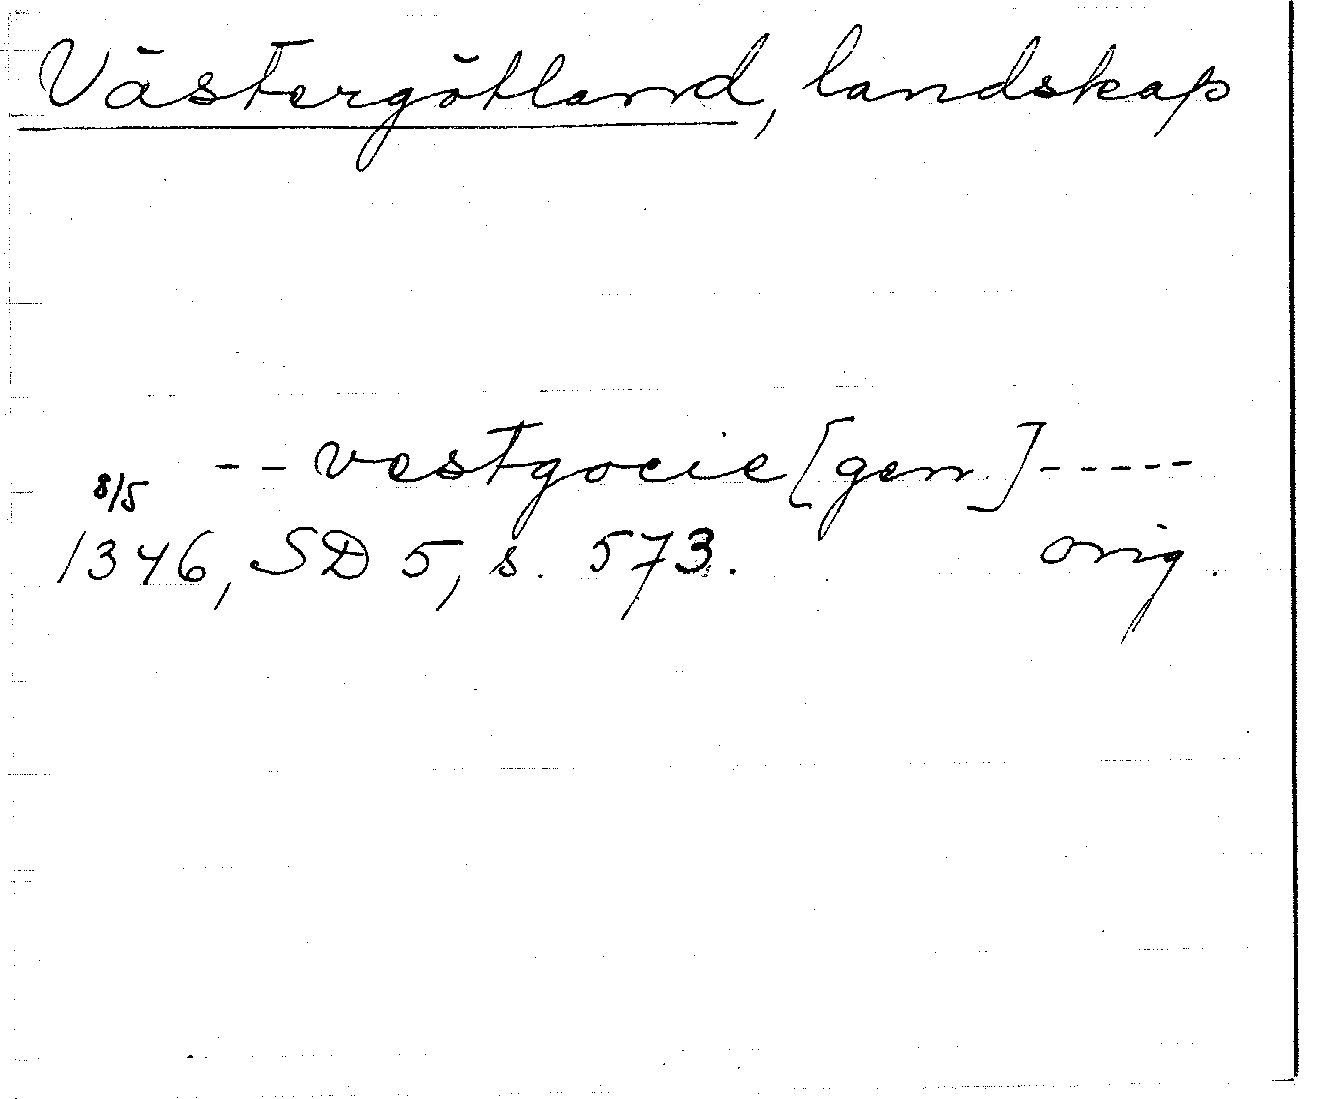 Västergötland, landskap
-- vestgocie [gen.] -----
8/5
1346, SD 5, s. 573. orig.